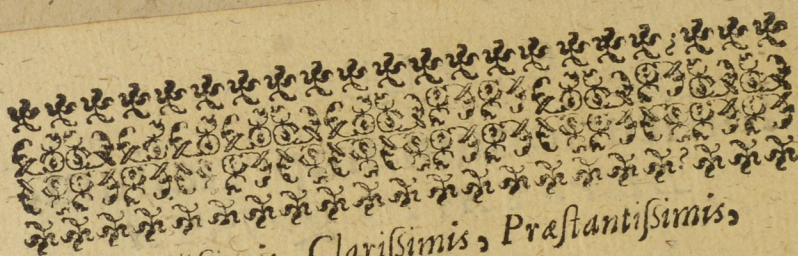 Clarißimis, Præſtantißimis,